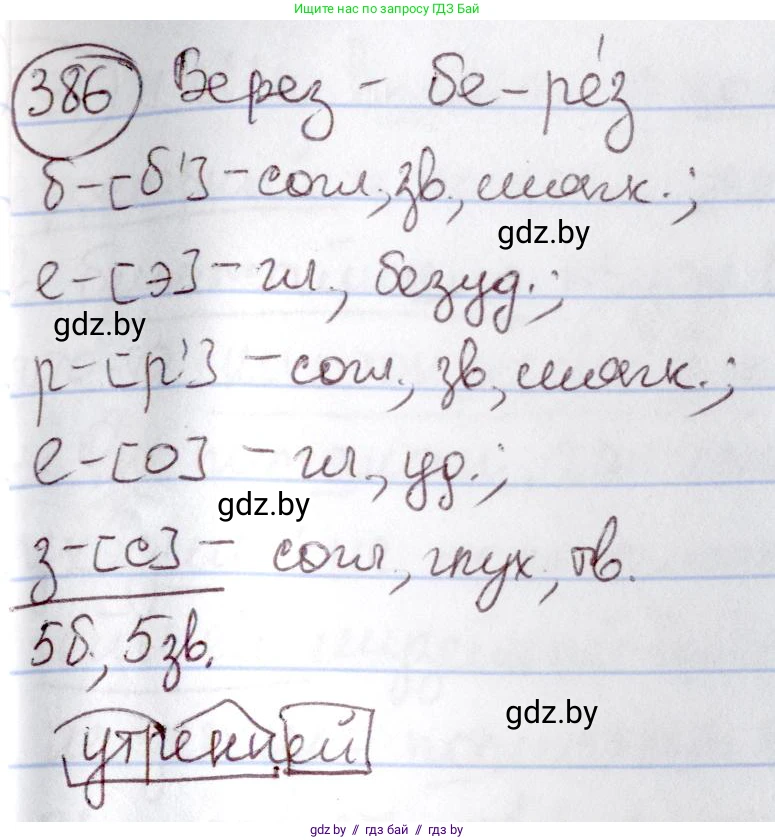 Ищите нас по запросу ГДЗ Бай
386 Берез - бе-ре́з
б-[б'] - согл., зв., мягк.;
gdz.by
е-[э] - гл., безуд.;
gdz.by
р-[р'] - согл., зв., мягк.;
е-[о] - гл., уд.;
gdz.by
з-[с] - согл., глух., тв.
5б., 5зв.
gdz.by
утренней
gdz.by // гдз бай // gdz.by